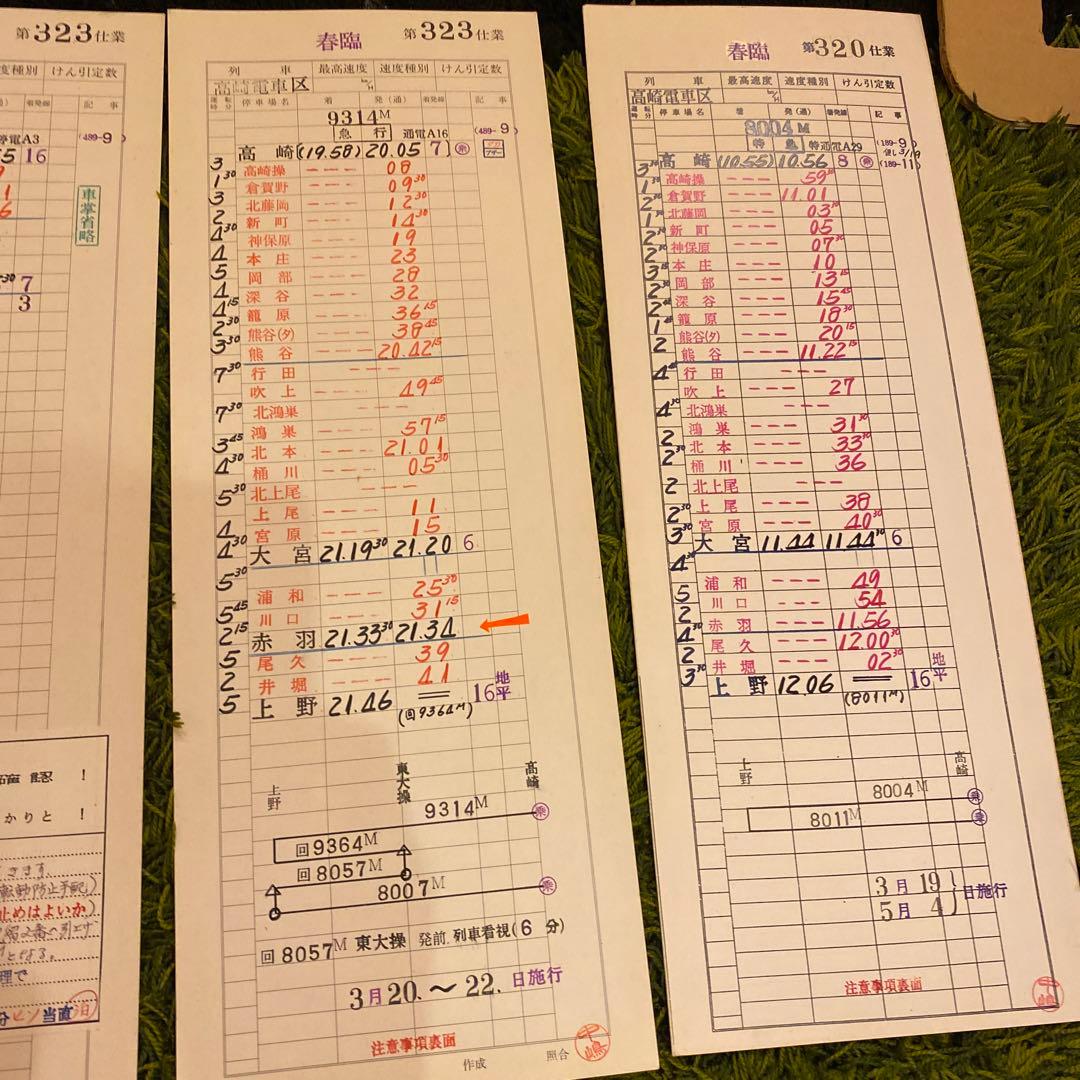 第323仕業
速度種別 けん引定数
着発線
記事
停電A3
(489-9)
55 16
車掌省略
30 7
3
確認!
かりと!
転動防止手配)
止めはよいか)
当直 泊
春臨 第323仕業
列車 最高速度 速度種別 けん引定数
高崎電車区 km/H
運転時分 停車場名 着 発(通) 着発線 記事
9314M
急行 通電A16 (489-9)
高崎 (19.58) 20.05 7 乗
3 高崎操 --- 08
1 30 倉賀野 --- 09 30
3 北藤岡 --- 12 30
2 新町 --- 14 30
4 30 神保原 --- 19
4 本庄 --- 23
5 岡部 --- 28
4 深谷 --- 32
4 15 籠原 --- 36 15
2 30 熊谷(タ) --- 38 45
3 30 熊谷 --- 20.42 15
行田 ---
7 30 吹上 --- 49 45
北鴻巣 ---
7 30 鴻巣 --- 57 15
3 45 北本 --- 21.01
4 30 桶川 --- 05 30
北上尾 ---
5 30 上尾 --- 11
4 宮原 --- 15
4 30 大宮 21.19 30 21.20 6
5 30 浦和 --- 25 30
5 45 川口 --- 31 15
2 15 赤羽 21.33 30 21.34
5 尾久 --- 39
2 井堀 --- 41
5 上野 21.46 == 16 地平
(回9364M)
上野 東大操 高崎
9314M 乗
回9364M
回8057M
8007M 乗
回8057M 東大操 発前 列車看視(6分)
3月20.～22.日施行
注意事項裏面
作成 照合
春臨 第320仕業
列車 最高速度 速度種別 けん引定数
高崎電車区 km/H
運転時分 停車場名 着 発(通) 着発線 記事
8004M
特急 特通電A29 (189-9)
但し3/19
(189-11)
高崎 (10.55) 10.56 8 乗
3 30 高崎操 --- 59 30
1 30 倉賀野 --- 11.01
2 30 北藤岡 --- 03 30
1 30 新町 --- 05
2 30 神保原 --- 07 30
2 30 本庄 --- 10
3 15 岡部 --- 13 15
2 30 深谷 --- 15 45
2 45 籠原 --- 18 30
1 45 熊谷(タ) --- 20 15
2 熊谷 --- 11.22 15
行田 ---
4 45 吹上 --- 27
北鴻巣 ---
4 30 鴻巣 --- 31 30
2 北本 --- 33 30
2 30 桶川 --- 36
北上尾 ---
2 上尾 --- 38
2 30 宮原 --- 40 30
3 30 大宮 11.44 11.44 30 6
4 30 浦和 --- 49
5 川口 --- 54
2 赤羽 --- 11.56
4 30 尾久 --- 12.00 30
2 井堀 --- 02 30
3 30 上野 12.06 == 16 地平
(8011M)
上野 高崎
8004M 乗
8011M 乗
3月19
5月4 日施行
注意事項裏面